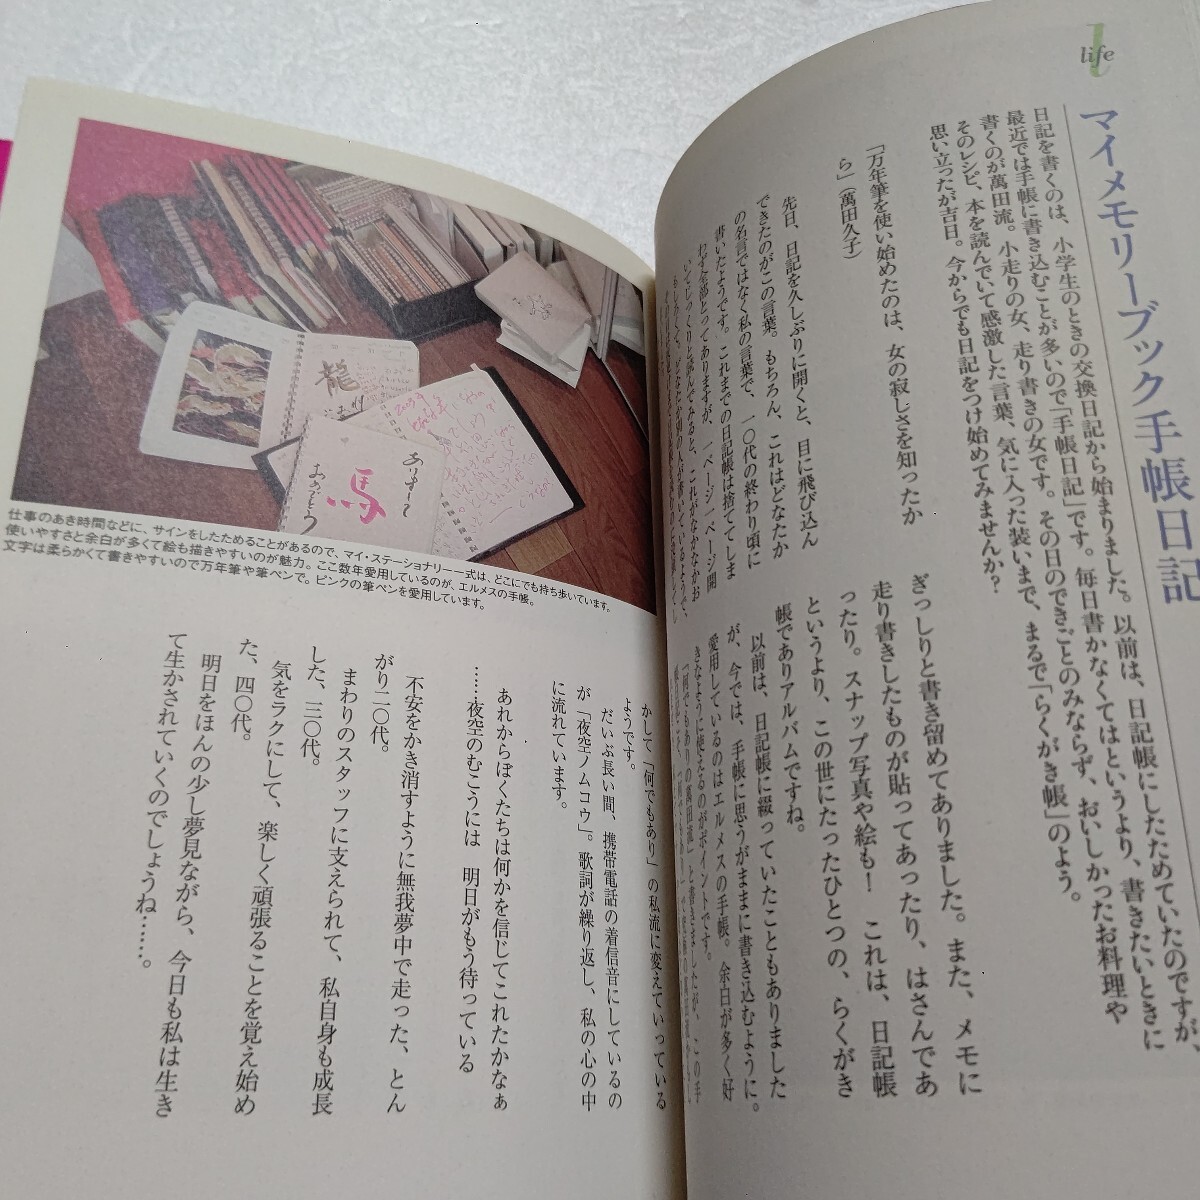 life
マイメモリーブック手帳日記
日記を書くのは、小学生のときの交換日記から始まりました。以前は、日記帳にしたためていたのですが、
最近では手帳に書き込むことが多いので「手帳日記」です。毎日書かなくてはというより、書きたいときに
書くのが萬田流。小走りの女、走り書きの女です。その日のできごとのみならず、おいしかったお料理や
そのレシピ、本を読んでいて感激した言葉、気に入った装いまで、まるで「らくがき帳」のよう。
思い立ったが吉日。今からでも日記をつけ始めてみませんか?
「万年筆を使い始めたのは、女の寂しさを知ったか
ら」(萬田久子)
先日、日記を久しぶりに開くと、目に飛び込ん
できたのがこの言葉。もちろん、これはどなたか
の名言ではなく私の言葉で、一〇代の終わり頃に
書いたようです。これまでの日記帳は捨ててしま
わず全部とってありますが、一ページ一ページ開
いてじっくりと読んでみると、これがなかなかお
もしろくて。どなたか別の人が書いているようで、
ぎっしりと書き留めてありました。また、メモに
走り書きしたものが貼ってあったり、はさんであ
ったり。スナップ写真や絵も! これは、日記帳
というより、この世にたったひとつの、らくがき
帳でありアルバムですね。
以前は、日記帳に綴っていたこともありました
が、今では、手帳に思うがままに書き込むように。
愛用しているのはエルメスの手帳。余白が多く好
きなように使えるのがポイントです。
「何でもありの萬田流」と書きましたが、この手
仕事のあき時間などに、サインをしたためることがあるので、マイ・ステーショナリー一式は、どこにでも持ち歩いています。
使いやすさと余白が多くて絵も描きやすいのが魅力。ここ数年愛用しているのが、エルメスの手帳。
文字は柔らかくて書きやすいので万年筆や筆ペンで。ピンクの筆ペンを愛用しています。
龍
馬
ありがとう
かして「何でもあり」の私流に変えていっている
ようです。
だいぶ長い間、携帯電話の着信音にしているの
が「夜空ノムコウ」。歌詞が繰り返し、私の心の中
に流れています。
あれからぼくたちは何かを信じてこれたかなぁ
……夜空のむこうには 明日がもう待っている
不安をかき消すように無我夢中で走った、とん
がり二〇代。
まわりのスタッフに支えられて、私自身も成長
した、三〇代。
気をラクにして、楽しく頑張ることを覚え始め
た、四〇代。
明日をほんの少し夢見ながら、今日も私は生き
て生かされていくのでしょうね……。